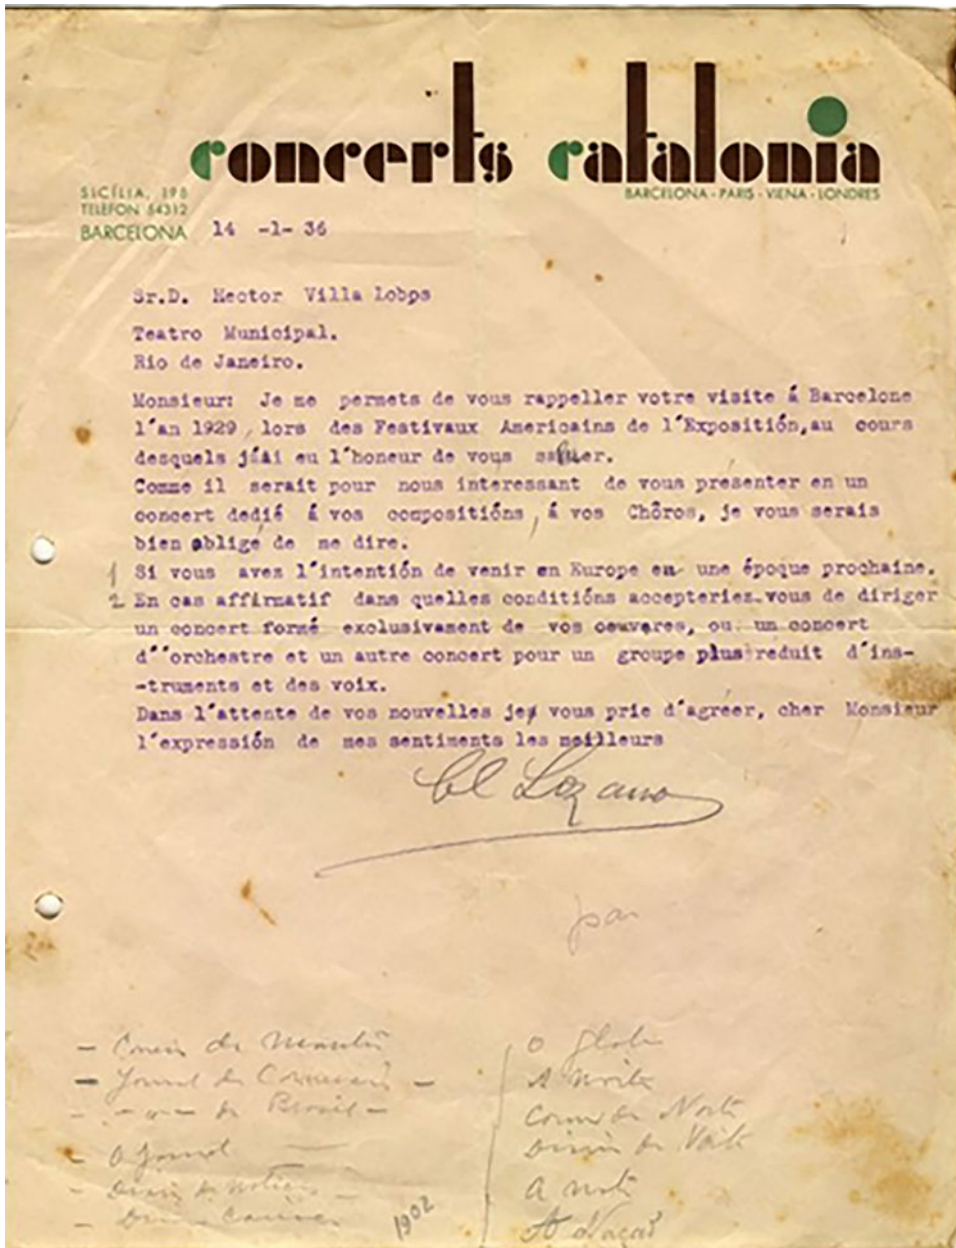 concerts catalonia
SICÍLIA, 198
TELEFON 54312
BARCELONA
BARCELONA - PARIS - VIENA - LONDRES
14 -1- 36
Sr.D. Hector Villa Lobps
Teatro Municipal.
Rio de Janeiro.
Monsieur: Je me permets de vous rappeller votre visite á Barcelone
l´an 1929, lors des Festivaux Americains de l´Expositión,au cours
desquels j´ai eu l´honeur de vous saluer.
Comme il serait pour nous interessant de vous présenter en un
concert dedié á vos compositións, á vos Chôros, je vous serais
bien obligé de me dire.
1 Si vous avez l´intentión de venir en Europe en une époque prochaine.
2 En cas affirmatif dans quelles conditións accepteriez-vous de diriger
un concert formé exclusivament de vos oeuvares, ou un concert
d´´orchestre et un autre concert pour un groupe plus reduit d´ins-
-truments et des voix.
Dans l´attente de vos nouvelles je vous prie d´agréer, cher Monsieur
l´expressión de mes sentiments les meilleurs
Cl Lozano
par
- Jornal do
- de Brasil -
- O Jornal
1902
O Globo
A Noite
A Nação